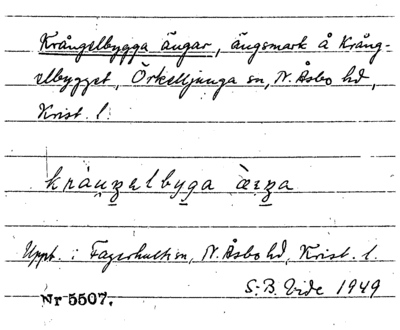 Krångelbygga ängar, ängsmark å Krång-
elbygget, Örkelljunga sn, N. Åsbo hd,
Krist. l.
Uppt. i Fagerhult sn, N. Åsbo hd, Krist. l.
S. B. Vide 1949
Nr 5507.